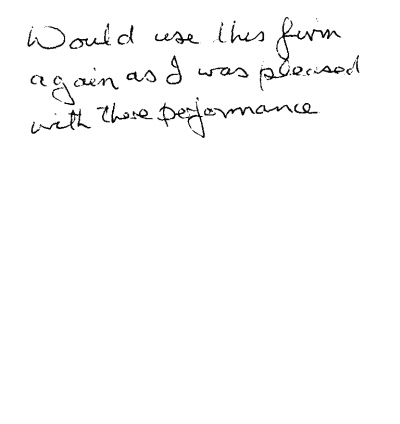 Would use this firm
again as I was pleased
with there performance